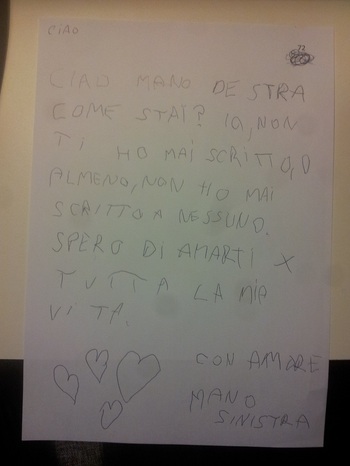 CIAO
22
CIAO MANO DESTRA
COME STAI? IO, NON
TI HO MAI SCRITTO, O
ALMENO, NON HO MAI
SCRITTO A NESSUNO.
SPERO DI AMARTI X
TUTTA LA MIA
VITA.
CON AMORE
MANO
SINISTRA